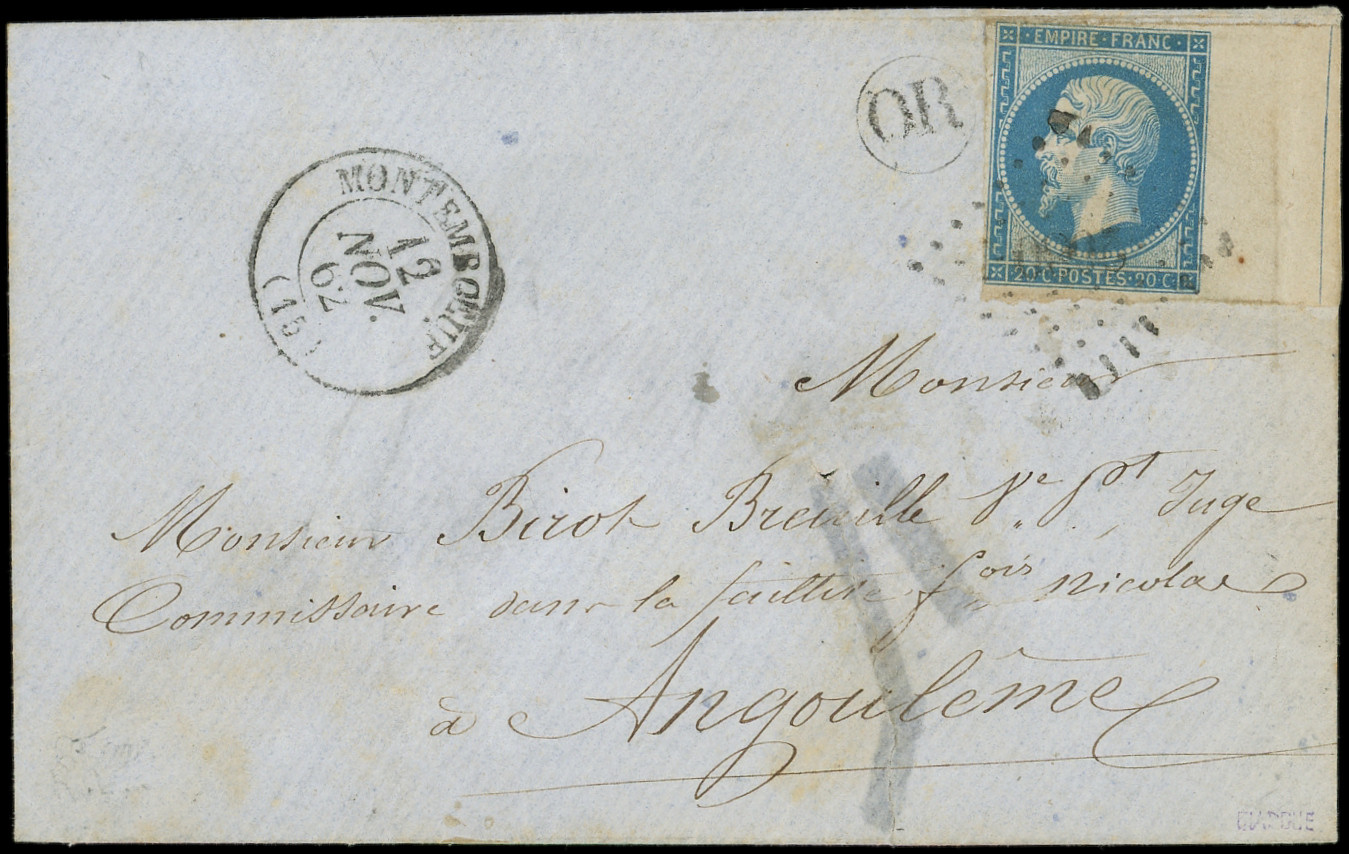 EMPIRE · FRANC
OR
20 C · POSTES · 20 C
MONTEMBOEUF
12
NOV.
62
(15)
Monsieur
Monsieur Birot Breuille Ve Pt Juge
Commissaire dans la faillite fois Nicolas
à Angoulême